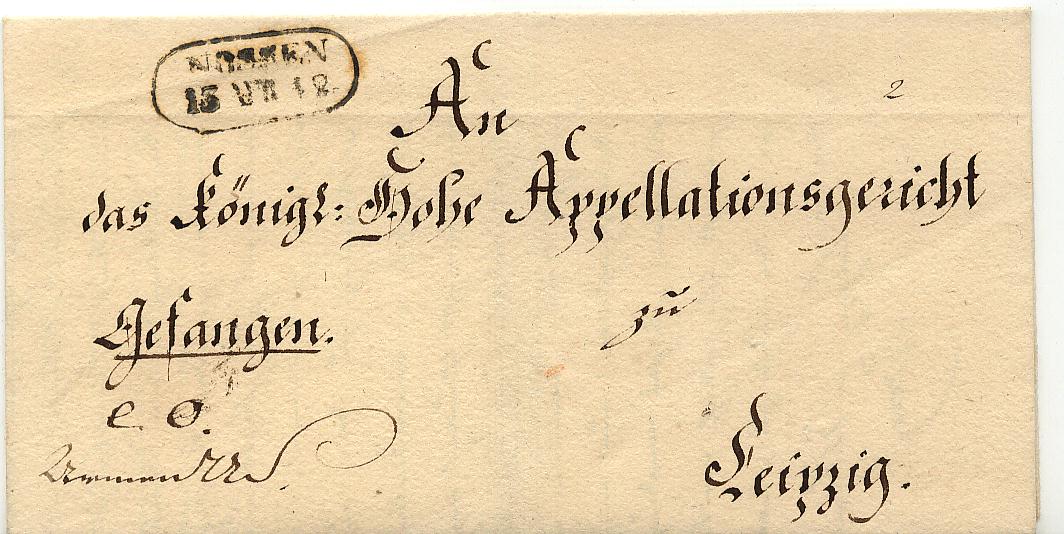 NOSSEN
15 VII 48
2
An
das Königl: Hohe Appellationsgericht
zu
Gefangen.
e. O.
Leipzig.